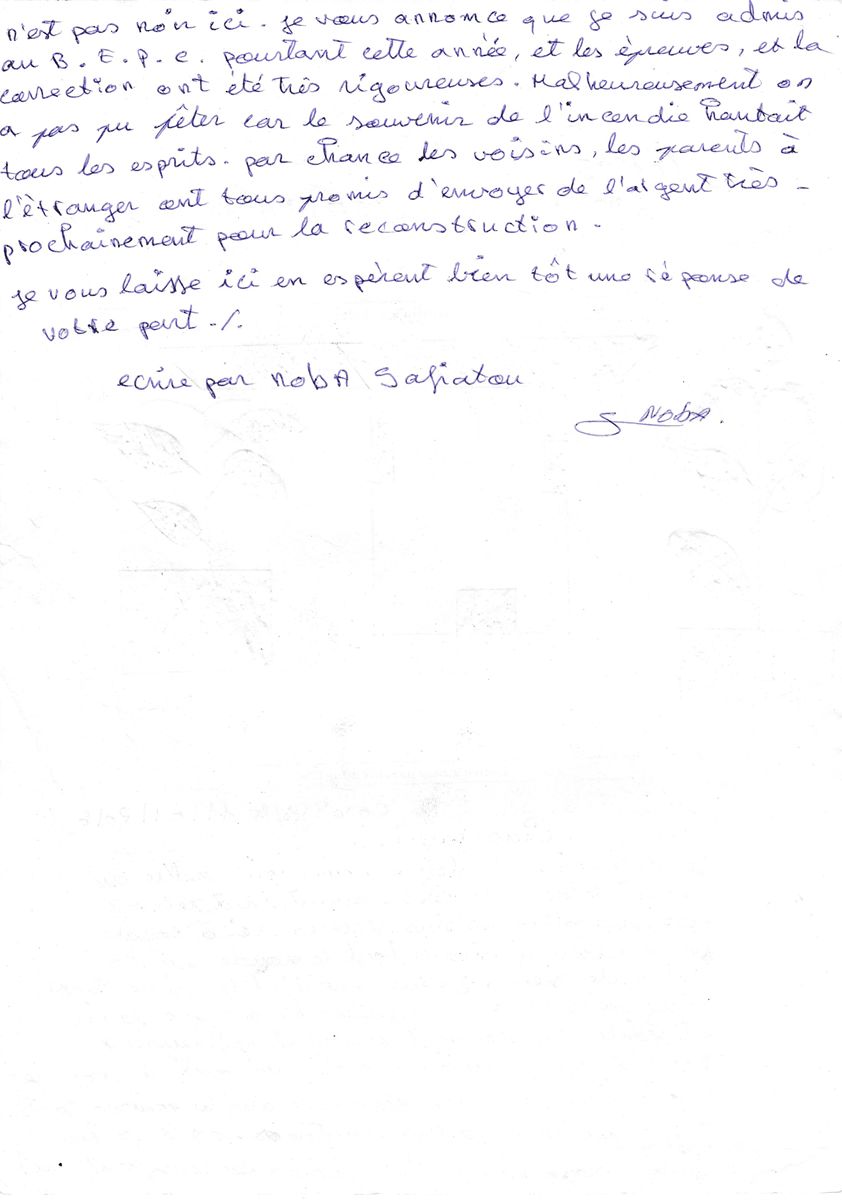 n'est pas noir ici. je vous annonce que je suis admis
au B.E.P.C. pourtant cette année, et les épreuves, et la
correction ont été très rigoureuses. Malheureusement on
a pas pu fêter car le souvenir de l'incendie hantait
tous les esprits. par chance les voisins, les parents à
l'étranger ont tous promis d'envoyer de l'argent très-
prochainement pour la reconstruction.
je vous laisse ici en espèrent bien tôt une réponse de
votre part ./.
ecrire par NobA Safiatou
S NobA.